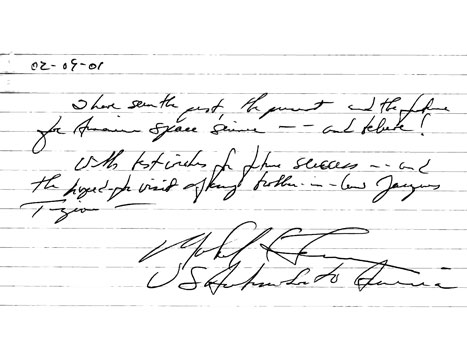 02-09-01
I have seen the past, the present and the future
for Armenian space science -- and believe!
With best wishes for future success -- and
the hoped-for visit of my brother-in-law Jacques
Tiziou —
US Ambassador to Armenia